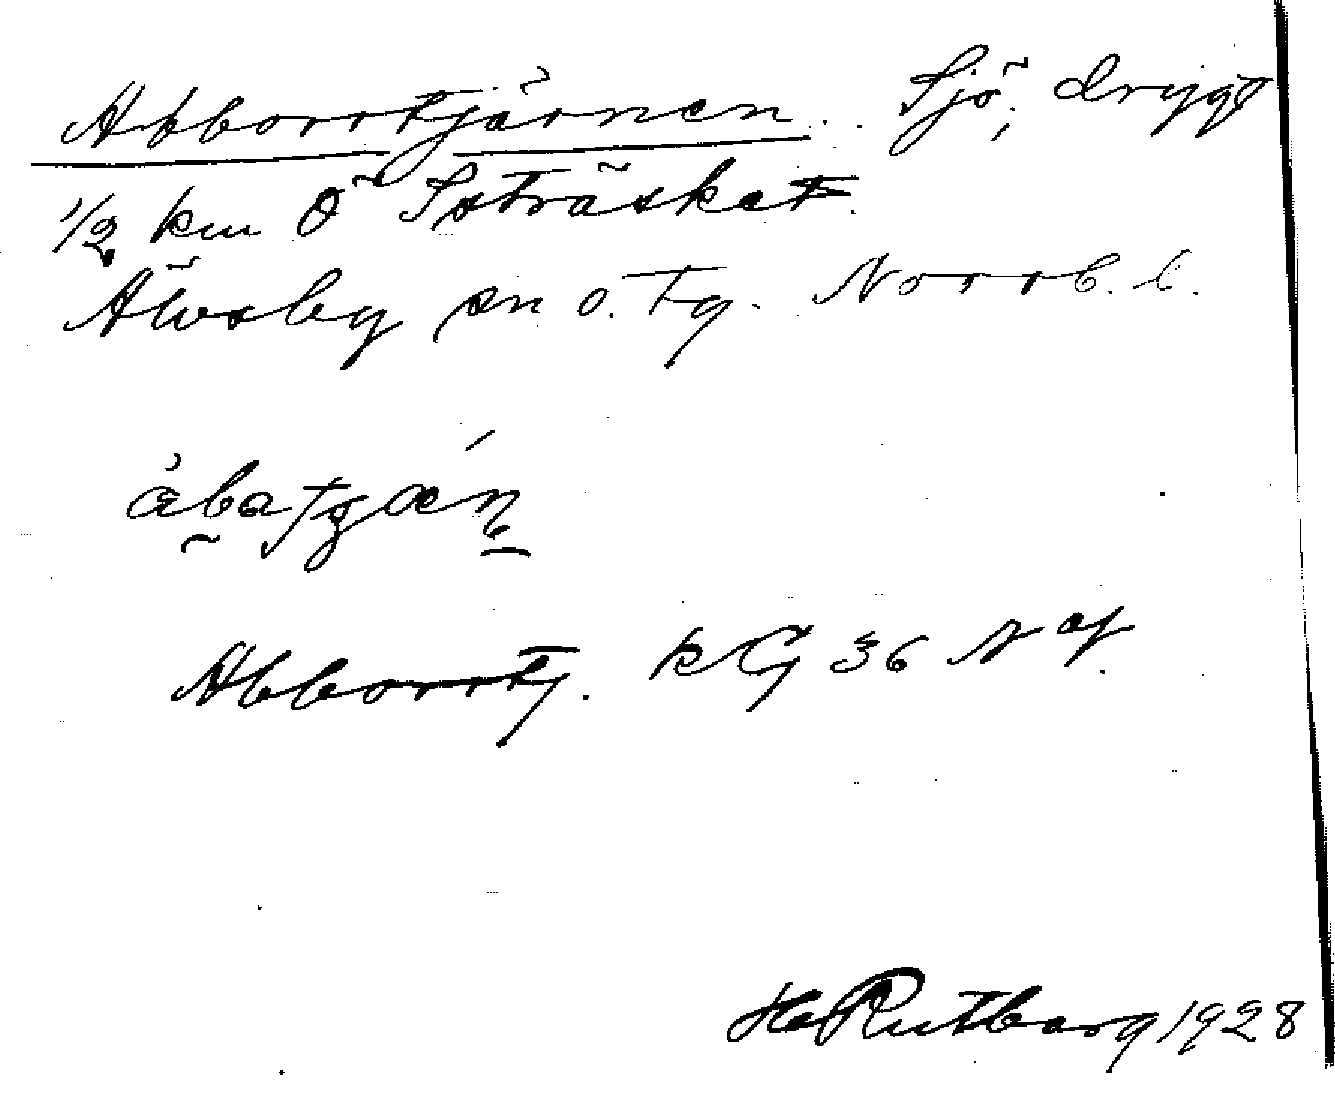 Abborrtjärnen. Sjö, drygt
1/2 km Ö Isträsket.
Älvsby sn o. tg. Norrb. l.
Abborrtj. kG 36 NOf.
H. Rutberg 1928